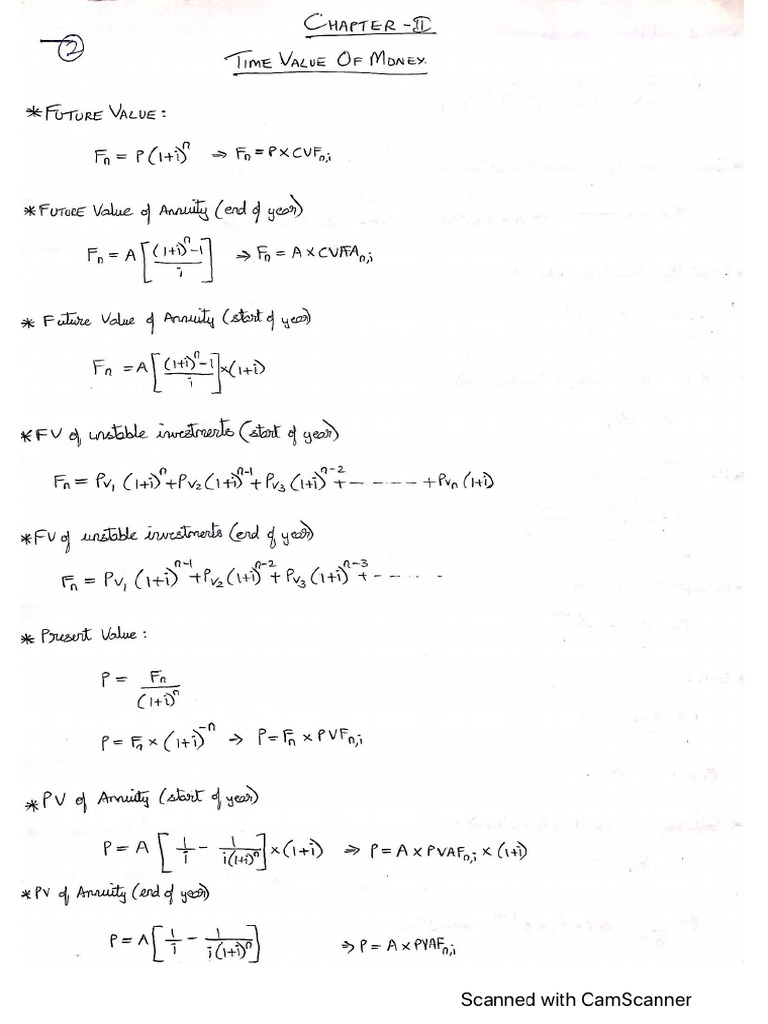 CHAPTER - II
2
TIME VALUE OF MONEY.
* FUTURE VALUE:
Fn = P(1+i)^n ⇒ Fn = P × CVFn,i
* FUTURE Value of Annuity (end of year)
Fn = A [((1+i)^n - 1)/i] ⇒ Fn = A × CVFAn,i
* Future Value of Annuity (start of year)
Fn = A [((1+i)^n - 1)/i] × (1+i)
* FV of unstable investments (start of year)
Fn = PV1 (1+i)^n + PV2 (1+i)^n-1 + PV3 (1+i)^n-2 + - - - - - - + PVn (1+i)
* FV of unstable investments (end of year)
Fn = PV1 (1+i)^n-1 + PV2 (1+i)^n-2 + PV3 (1+i)^n-3 + - - - - -
* Present Value:
P = Fn/(1+i)^n
P = Fn × (1+i)^-n → P = Fn × PVFn,i
* PV of Annuity (start of year)
P = A [1/i - 1/(i(1+i)^n)] × (1+i) ⇒ P = A × PVAFn,i × (1+i)
* PV of Annuity (end of year)
P = A [1/i - 1/(i(1+i)^n)] ⇒ P = A × PVAFn,i
Scanned with CamScanner